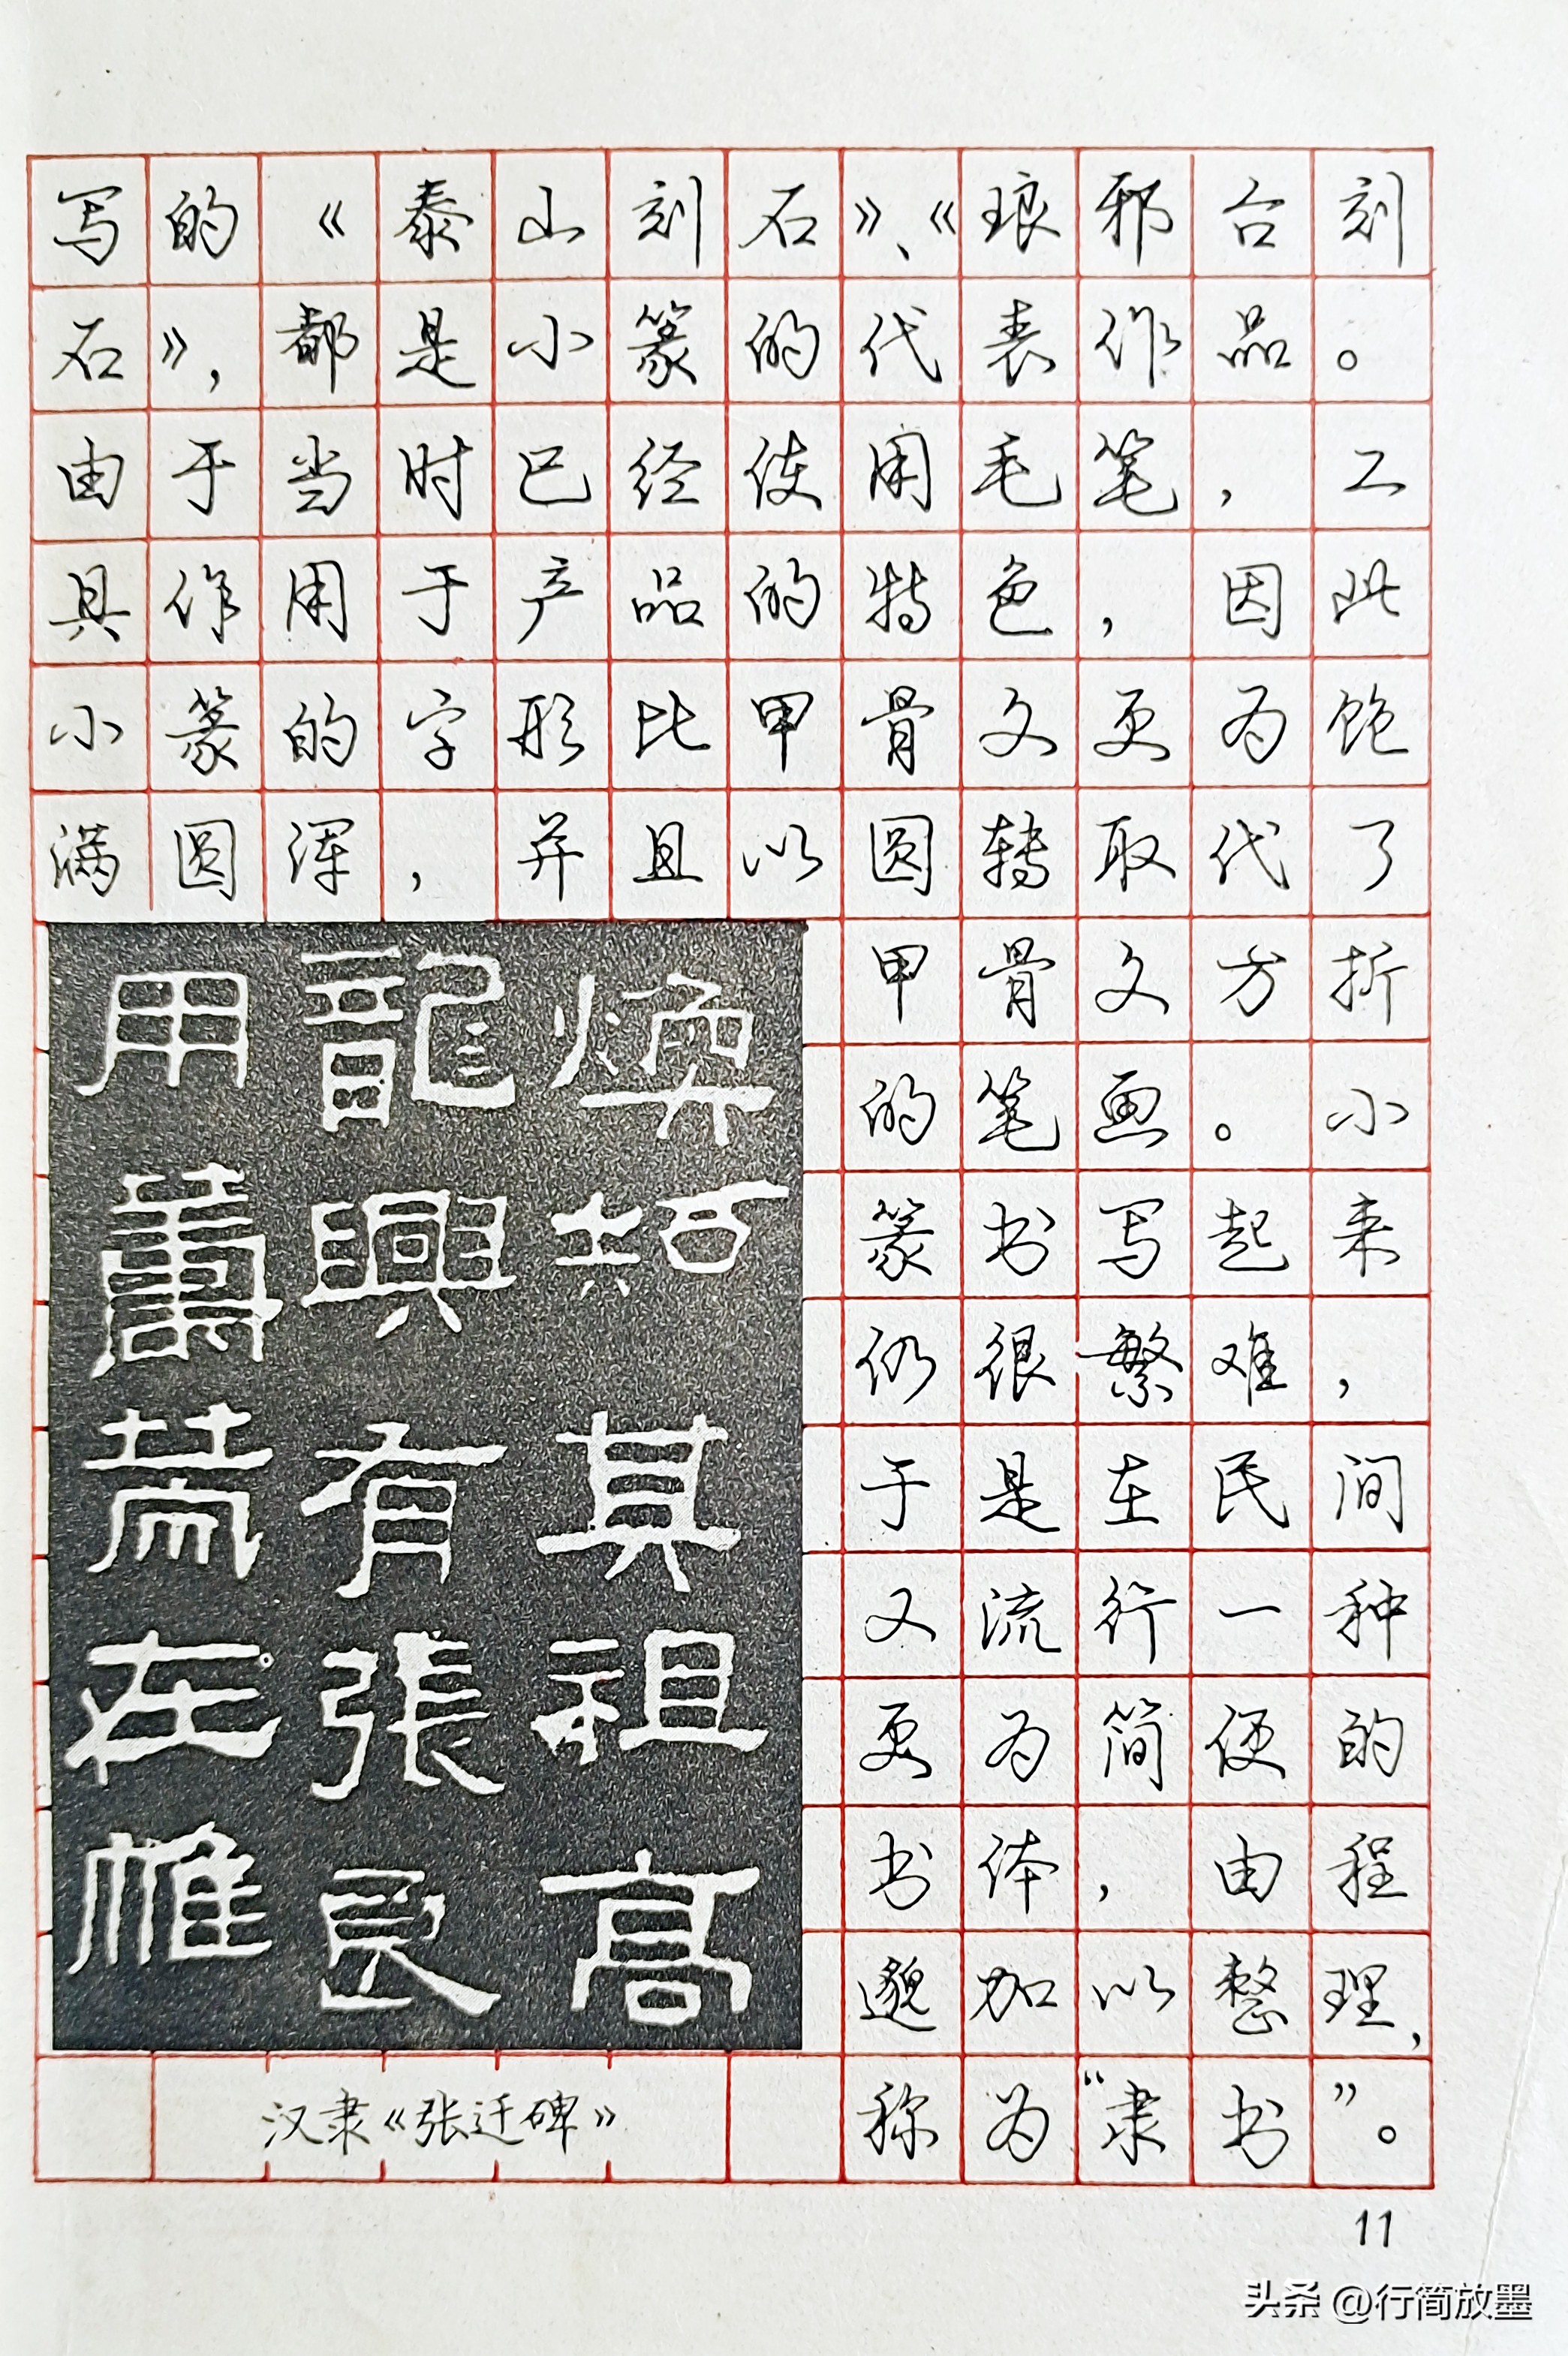 写的《泰山刻石》、《琅邪台刻
石》，都是小篆的代表作品。
由于当时已经使用毛笔，工
具作用于产品的特色，因此
小篆的字形比甲骨文更为饱
满圆浑，并且以圆转取代了
甲骨文方折
的笔画。小
篆书写起来
仍很繁难，
于是在民间
又流行一种
更为简便的
书体，由程
邈加以整理，
称为“隶书”。
煥知其祖高
龍興有張良
用籌策在帷
汉隶《张迁碑》
11
头条 @行简放墨